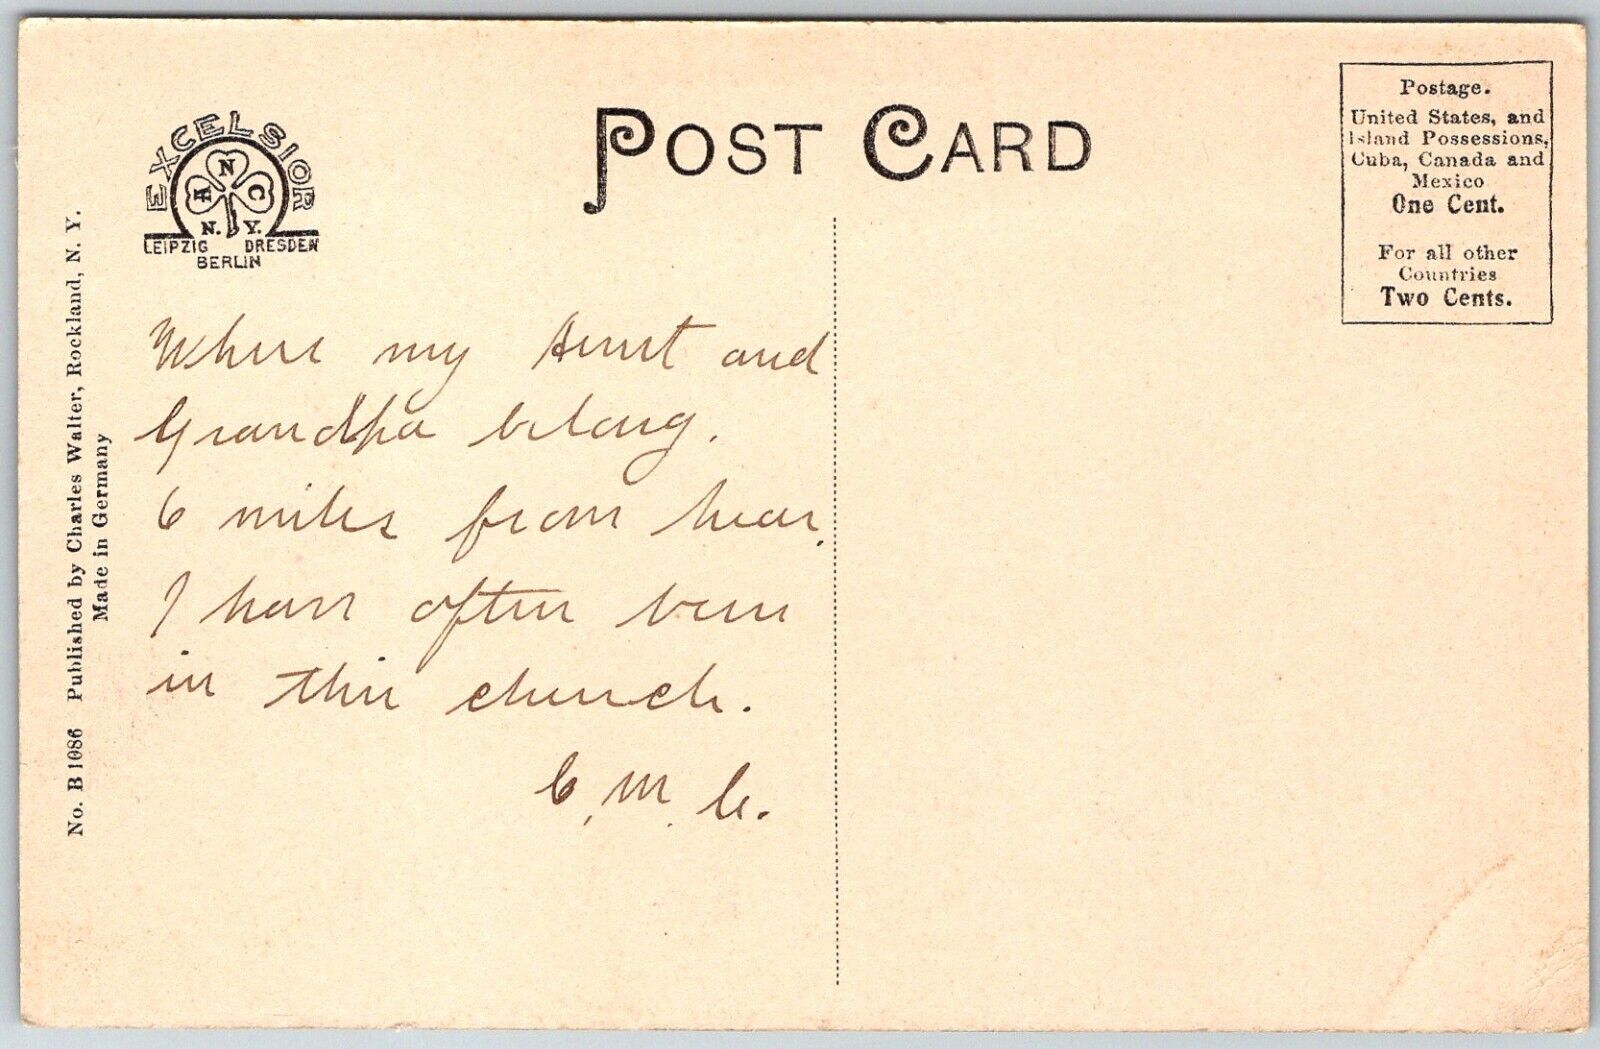 POST CARD
EXCELSIOR
ANC
N. Y.
LEIPZIG DRESDEN
BERLIN
Postage.
United States, and
Island Possessions,
Cuba, Canada and
Mexico
One Cent.
For all other
Countries
Two Cents.
No. B 1086 Published by Charles Walter, Rockland, N. Y.
Made in Germany
Where my Aunt and
Grandpa belong.
6 miles from hear.
I have often been
in this church.
C. M. C.